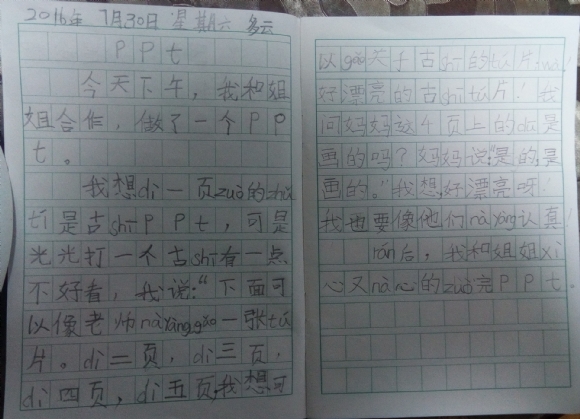 2016年 7月30日 星期六 多云
P P t
今天下午，我和姐
姐合作，做了一个 P P
t 。
我想 dì 一 页 zuò 的 zhǔ
tí 是古 shī P P t ，可是
光光打一个古 shī 有一点
不好看，我说：“下面可
以像老师 nà yàng gǎo 一张 tú
片。dì 二 页，dì 三 页，
dì 四 页，dì 五 页，我想可
以 gǎo 关于古 shī 的 tú 片，wa！
好漂亮的古 shī tú 片！我
问妈妈这 4 页上的 dū 是
画的吗？妈妈说：“是的，是
画的。”我想，好漂亮呀！
我也要像他们 nà yàng 认真！
rán 后，我和姐姐 xì
心又 nài 心的 zuò 完 P P t 。